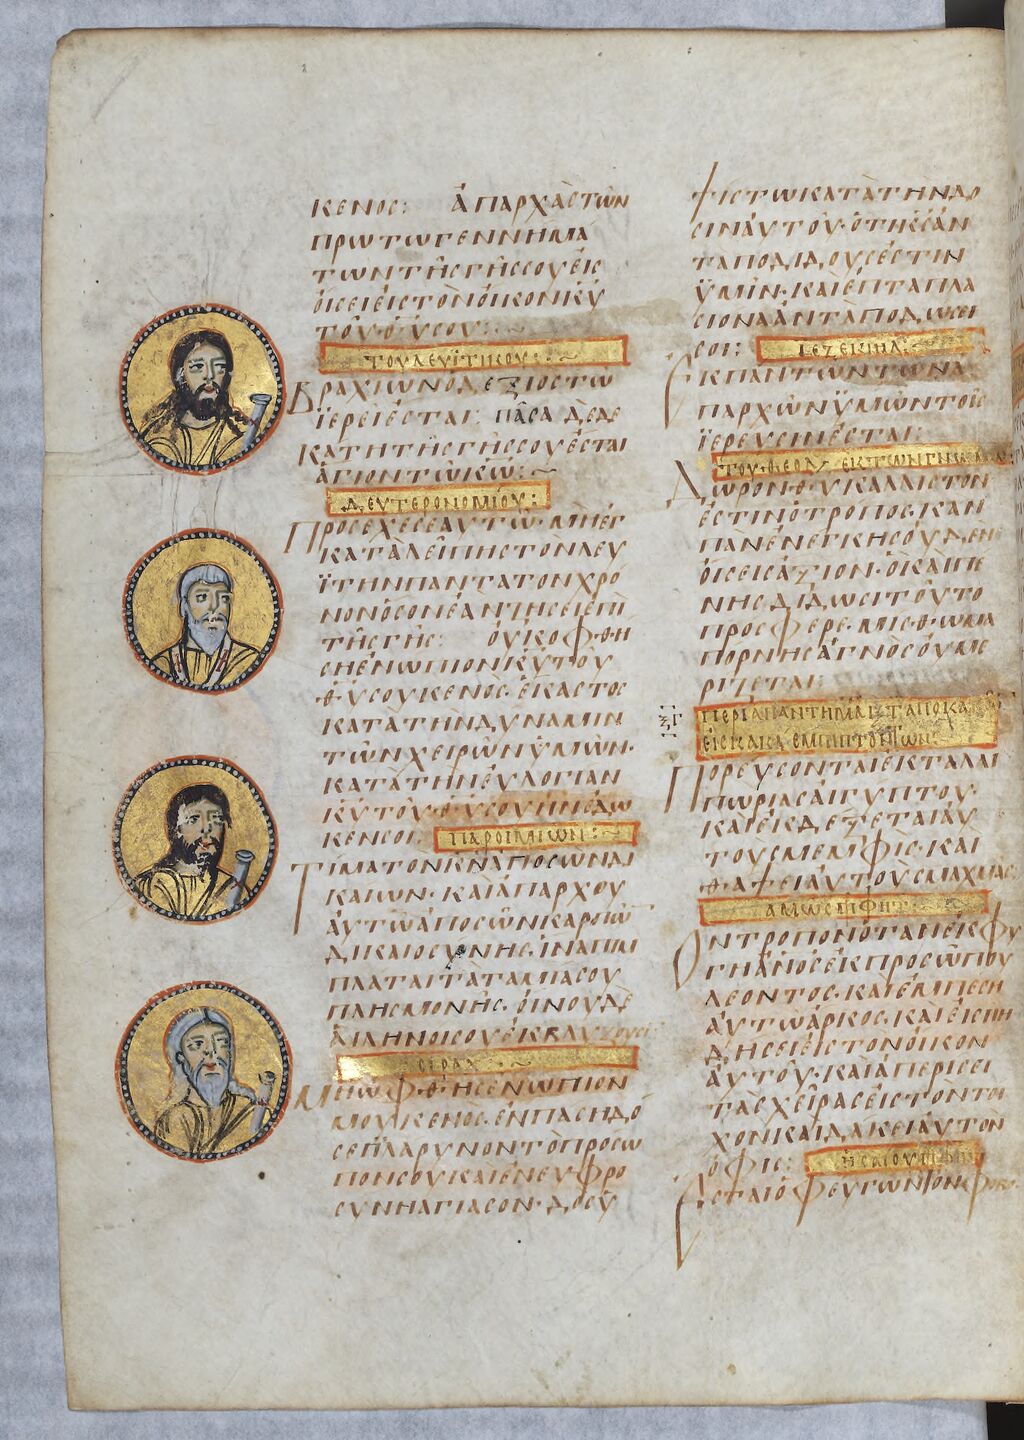 ΚΕΝΟϹ: ἈΠΑΡΧᾺϹΤῶΝ
ΠΡΩΤΩΓΕΝΝΗΜΑ
ΤΩΝΤῆϹΓῆϹϹΟΥΕἰϹ
ΟἴϹΕΙϹΕἰϹΤῸΝΟἶΚΟΝΚ̅Υ̅
ΤΟΥΘ̅Υ̅ϹΟΥ:
ΤΟΥΛΕΥΪΤΙΚΟΥ:
ΒΡΑΧΙΩΝὉΔΕΞΙΟϹΤΩ
ἹΕΡΕΙἔϹΤΑΙ: ΠᾶϹΑ ΔὲΔΕ
ΚΑΤΗΤῆϹΓῆϹϹΟΥἔϹΤΑΙ
ἍΓΙΟΝΤῶΚ̅Ω̅:
ΔΕΥΤΕΡΟΝΟΜΙΟΥ:
ΠΡΟϹΕΧΕϹΕΑΥΤῶ·ΜῊἘΓ
ΚΑΤΑΛΕΙΠΗϹΤῸΝΛΕΥ
ΪΤΗΝΠΑΝΤΑΤΟΝΧΡΟ
ΝΟΝὍϹΟΝἘΑΝΖΗϹΕΙἘΠῚ
ΤῆϹΓῆϹ: ΟὐΚΟΦΘΗ
ϹΗἘΝΩΠΙΟΝΚ̅Υ̅ΤΟΥ
Θ̅Υ̅ϹΟΥΚΕΝΟϹ·ἝΚΑϹΤΟϹ
ΚΑΤΑΤΗΝΔΥΝΑΜΙΝ
ΤῶΝΧΕΙΡῶΝὙΜῶΝ·
ΚΑΤΑΤΗΝΕὐΛΟΓΙΑΝ
Κ̅Υ̅ΤΟΥ·Θ̅Υ̅ϹΟΥἫΝἜΔΩ
ΚΕΝϹΟΙ: ΠΑΡΟΙΜΙῶΝ:
ΤΙΜΑΤΟΝΚ̅Ν̅ἈΠΟϹῶΝΔΙ
ΚΑΙΩΝ·ΚΑΙἈΠΑΡΧΟΥ
ΑὐΤῶἈΠΟϹῶΝΚΑΡΠῶ
ΔΙΚΑΙΟϹΥΝΗϹ·ἽΝΑΠΙΜ
ΠΛΑΤΑΙΤᾺΤΑΜΙΑϹΟΥ
ΠΛΗϹΜΟΝΗϹ·ΟἼΝΟΥΔΕ
ΑἹΛΗΝΟΙϹΟΥἘΚΒΛΥΖΟΥϹΙ
ϹΙΡΑΧ:
ΜΗὨΦΘΗϹἘΝΩΠΙΟΝ
ΜΟΥΚΕΝΟϹ·ἘΝΠΑϹΗΔΟ
ϹΕΙἹΛΑΡΥΝΟΝΤῸΠΡΟϹΩ
ΠΟΝϹΟΥΚΑΙἘΝΕΥΦΡΟ
ϹΥΝΗἉΓΙΑϹΟΝ·ΔΟϹΥ
ΨΙϹΤΩΚΑΤᾺΤΗΝΔΟ
ϹΙΝΑὐΤΟΥ·ὍΤΙΚ̅Ϲ̅ἈΝ
ΤΑΠΟΔΙΔΟΥϹἘϹΤΙΝ
ὙΜΙΝ·ΚΑΙἙΠΤΑΠΛΑ
ϹΙΟΝΑἈΝΤΑΠΟΔΩϹΕΙ
ϹΟΙ: ἸΕΖΕΚΙΗΛ:
ΕΚΠΑΝΤΩΝΤῶΝἈ
ΠΑΡΧῶΝὙΜῶΝΤΟΙϹ
ἹΕΡΕΥϹΙΝἜϹΤΑΙ:
ΤΟΥΘΕΟΛ ἘΚΤΩΝΓΝΩΜ
ΔῶΡΟΝΘ̅Υ̅ΚΑΛΛΙϹΤΟΝ
ἘϹΤΙΝὉΤΡΟΠΟϹ·ΚΑΝ
ΠΑΝἘΝΕΓΚΗϹΟὐΔΕΝ
ΟἼϹΕΙϹἌΞΙΟΝ·ὉΚΑΙΠΕ
ΝΗϹΔΙΔΩϹΙΤΟΥΤΟ
ΠΡΟϹΦΕΡΕ·ΜΙϹΘΩΜΑ
ΠΟΡΝΗϹἉΓΝὸϹΟὐΜΕ
ΡΙΖΕΤΑΙ:
Ξ̅Γ̅
ΠΕΡΙἈΠΑΝΤΗΜΑΤ
ΕἰϹΚΑΚᾺἘΜΠΙΠΤΟΝΤῶΝ:
ΠΟΡΕΥϹΟΝΤΑΙἘΚΤΑΛΑΙ
ΠΩΡΙΑϹΑἰΓΥΠΤΟΥ·
ΚΑΙἘΚΔΕΞΕΤΑΙΑὐ
ΤΟΥϹΜΕΜΦΙϹ·ΚΑΙ
ΘΑΨΕΙΑὐΤΟΥϹΜΑΧΜΑϹ
ΑΜΩϹΠΡΦΗΤ:
ΟΝΤΡΟΠΟΝὍΤΑΝἘΚΦΥ
ΓΗΑ̅Ν̅Ο̅ϹἘΚΠΡΟϹΩΠΟΥ
ΛΕΟΝΤΟϹ·ΚΑΙἘΜΠΕϹΗ
ΑὐΤΩἌΡΚΟϹ·ΚΑΙΕἰϹΠΗ
ΔΗϹΕΙΕἰϹΤΟΝΟἶΚΟΝ
ΑὐΤΟΥ·ΚΑΙἈΠΕΡΙϹΕΙ
ΤΑϹΧΕΙΡΑϹΕἰϹΤΟΝΤΟΙ
ΧΟΝΚΑΙΔΑΚΕΙΑὐΤΟΝ
ὉΦΙϹ: ἨϹΑΙΟΥ
ΕϹΤΑΙὉΦΕΥΓΩΝΤΟΝΦΟΒΟ